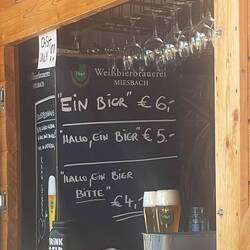 CASH
ONLY !!
Weißbierbrauerei
MIESBACH
"EIN BIER" € 6,-
"HALLO, EIN BIER" € 5.-
"HALLO, EIN BIER
BITTE" € 4,-
DRINK